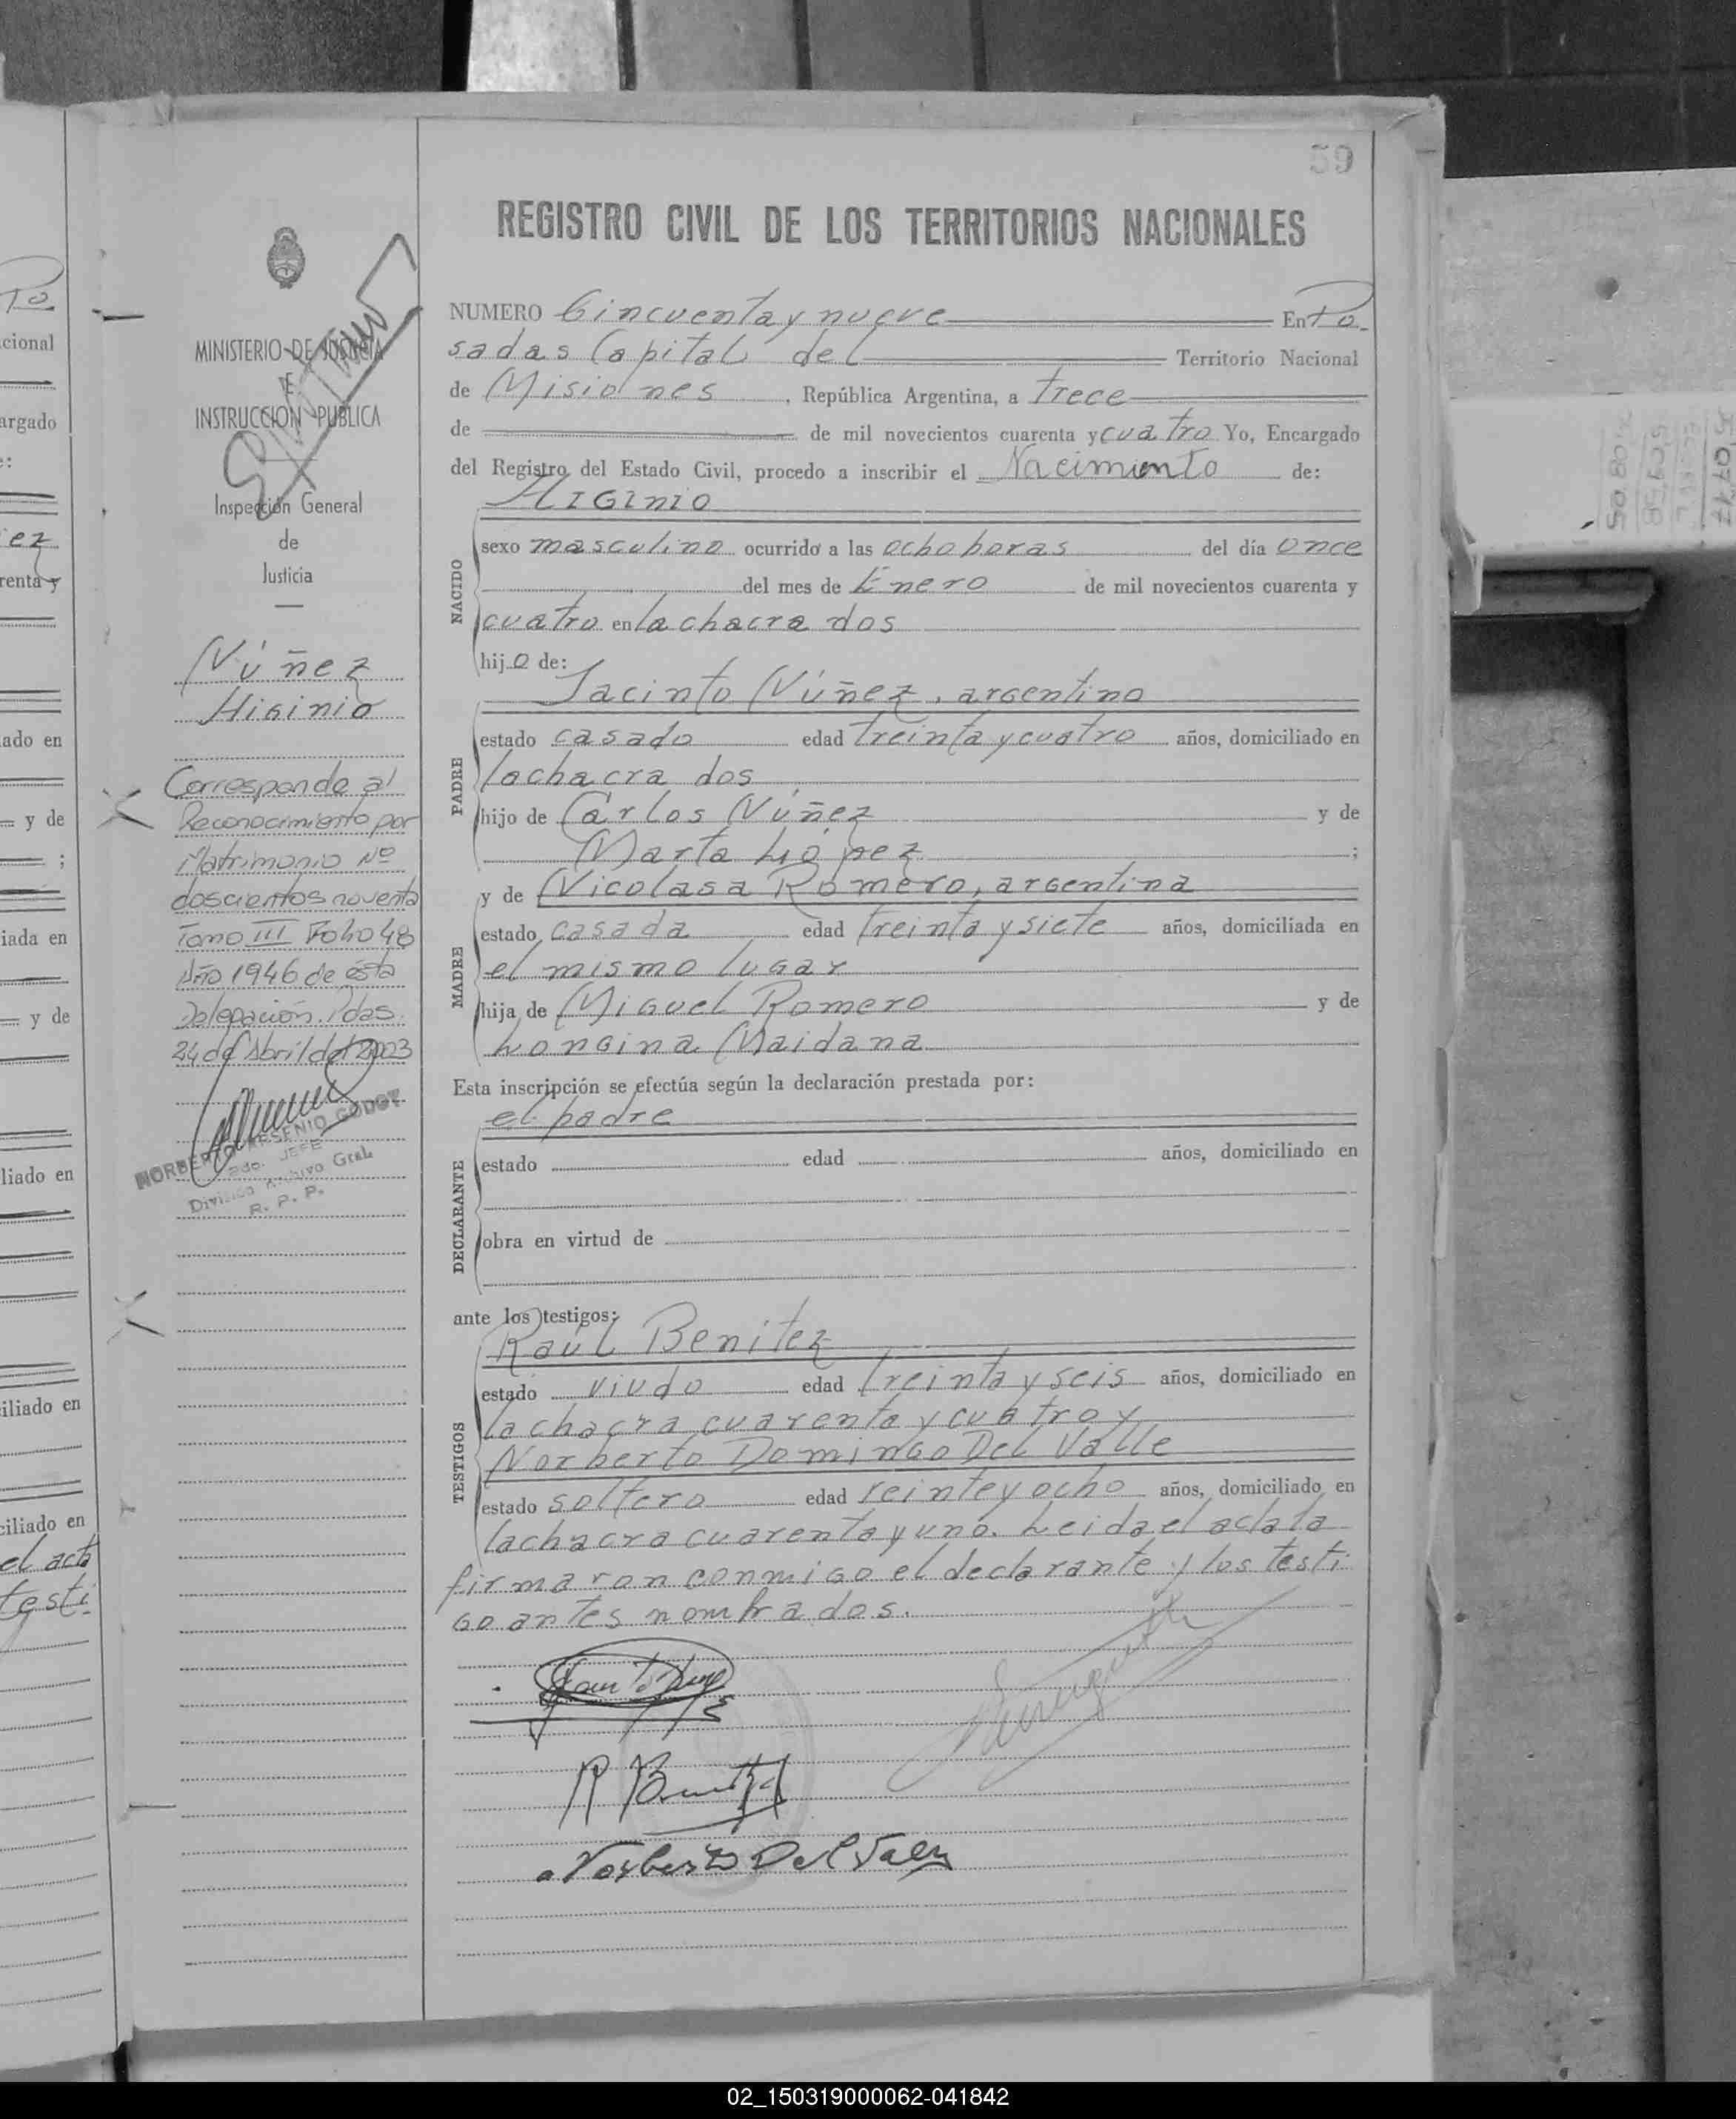 59
REGISTRO CIVIL DE LOS TERRITORIOS NACIONALES
NUMERO Cincuenta y nueve En Po-
sadas Capital del Territorio Nacional
de Misiones, República Argentina, a trece
de de mil novecientos cuarenta y cuatro Yo, Encargado
del Registro del Estado Civil, procedo a inscribir el Nacimiento de:
HIGINIO
NACIDO
sexo masculino ocurrido a las ocho horas del día once
del mes de Enero de mil novecientos cuarenta y
cuatro en la chacra dos
hijo de:
Jacinto Núñez, argentino
PADRE
estado casado edad treinta y cuatro años, domiciliado en
la chacra dos
hijo de Carlos Núñez y de
Marta López ;
y de Nicolasa Romero, argentina
MADRE
estado casada edad treinta y siete años, domiciliada en
el mismo lugar
hija de Miguel Romero y de
Longina Maidana
Esta inscripción se efectúa según la declaración prestada por:
el padre
DECLARANTE
estado edad años, domiciliado en
obra en virtud de
ante los testigos:
Raúl Benitez
TESTIGOS
estado viudo edad treinta y seis años, domiciliado en
la chacra cuarenta y cuatro y
Norberto Domingo Del Valle
estado soltero edad veinte y ocho años, domiciliado en
la chacra cuarenta y uno. Leida el acta la
firmaron conmigo el declarante y los testi-
go antes nombrados.
R Benitez
Norberto Del Valle
MINISTERIO DE JUSTICIA
DE
INSTRUCCION PUBLICA
Inspección General
de
Justicia
Núñez
Higinio
Corresponde al
Reconocimiento por
Matrimonio Nº
doscientos noventa
Tomo III Folio 48
Año 1946 de ésta
Delegación. Pdas.
24 de Abril del 2003
NORBERTO ARSENIO GODOY
JEFE
División Archivo Gral.
R. P. P.
To.
cional
argado
:
ez
renta y
ado en
y de
;
iada en
y de
liado en
iliado en
ciliado en
el acta
testi-
02_150319000062-041842